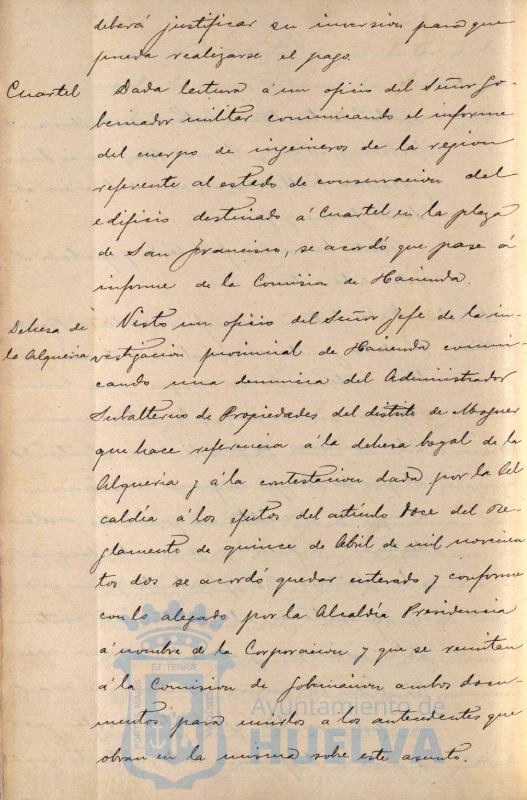 deberá justificar su inversion para que
pueda realizarse el pago.
Cuartel Dada lectura á un oficio del Señor Go-
bernador militar comunicando el informe
del cuerpo de ingenieros de la region
referente al estado de conservacion del
edificio destinado á Cuartel en la plaza
de San Francisco, se acordó que pase á
informe de la Comision de Hacienda.
Dehesa de Visto un oficio del Señor Jefe de la in-
la Alqueria vestigacion provincial de Hacienda comuni-
cando una denuncia del Administrador
Subalterno de Propiedades del distrito de Moguer
que hace referencia á la dehesa boyal de la
Alqueria y á la contestacion dada por la Al
caldía á los efectos del artículo doce del Re-
glamento de quince de Abril de mil novecien
tos dos se acordó quedar enterado y conforme
con lo alegado por la Alcaldía Presidencia
á nombre de la Corporacion y que se remitan
á la Comision de Gobernacion ambos docu-
mentos para unirlos a los antecedentes que
obran en la misma sobre este asunto.
PORTUS MARIS ET TERRÆ CUSTODIA
Ayuntamiento de
HUELVA